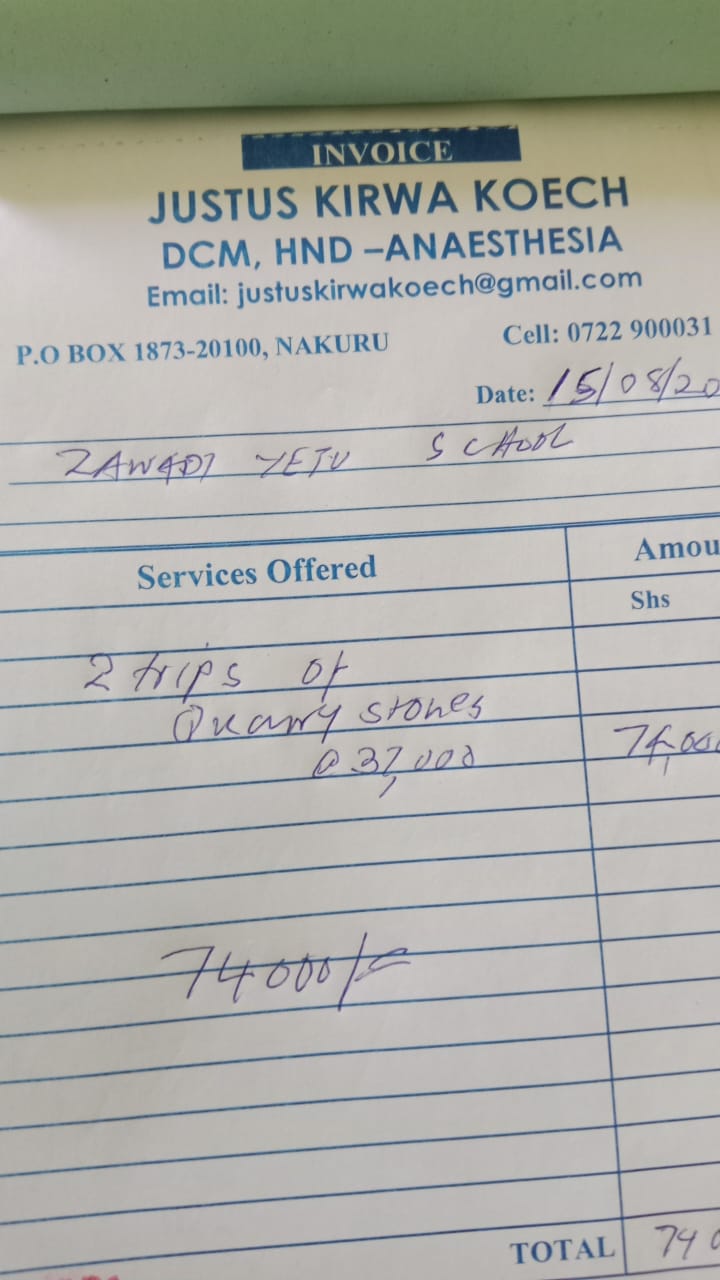 INVOICE
JUSTUS KIRWA KOECH
DCM, HND –ANAESTHESIA
Email: justuskirwakoech@gmail.com
P.O BOX 1873-20100, NAKURU
Cell: 0722 900031
Date: 15/08/20
ZAWADI YETU SCHOOL
Services Offered
Amou
Shs
2 trips of
Quarry stones
@ 37,000
74,000
74000/=
TOTAL 740